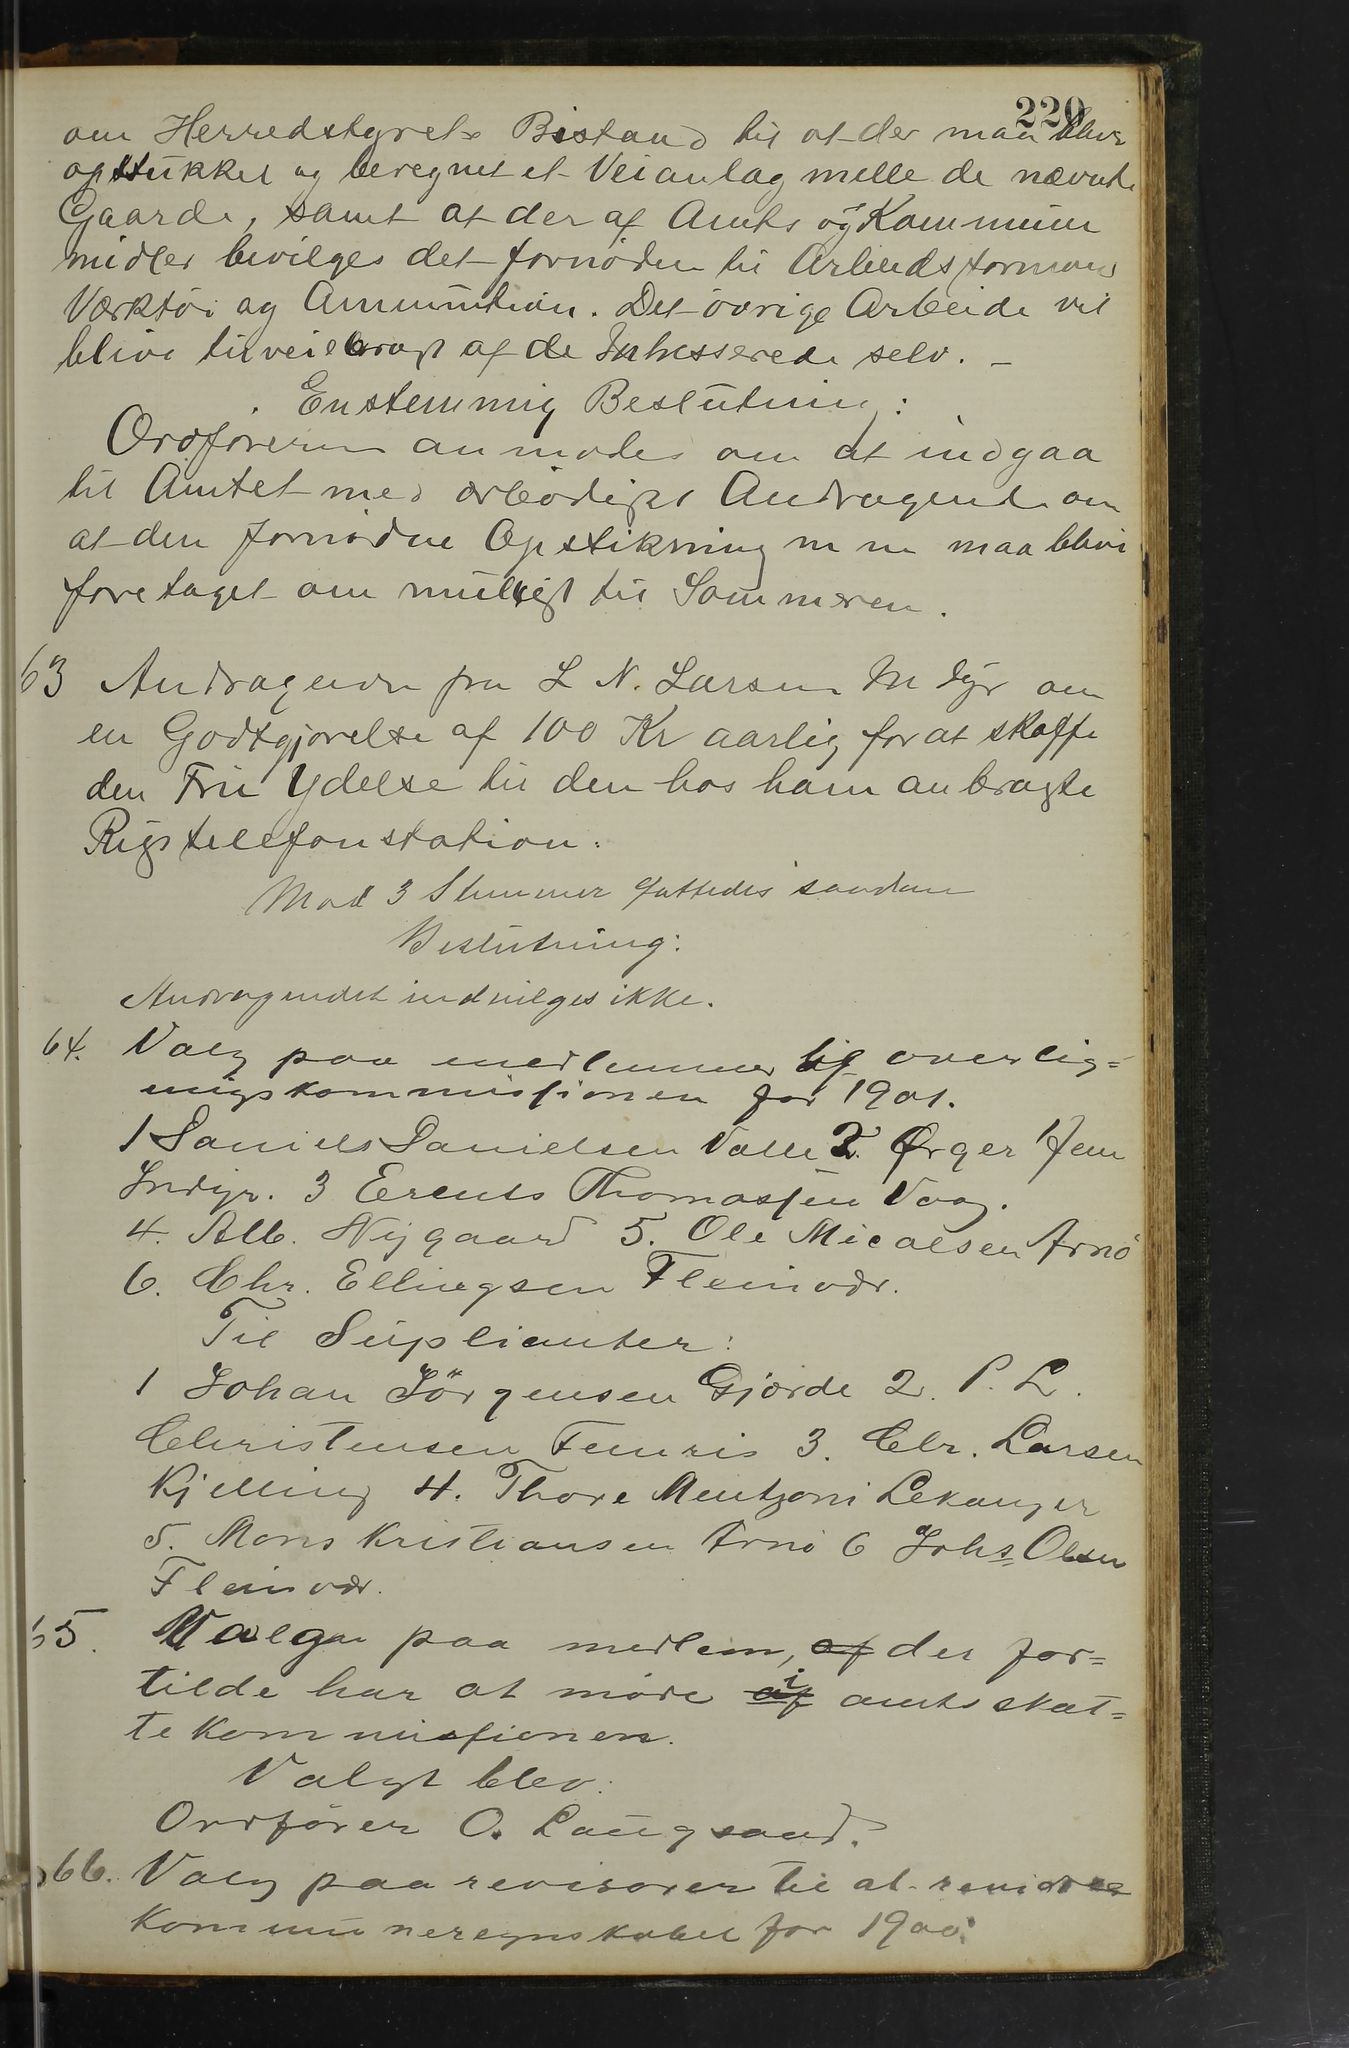 220
om Herredstyrets Bistand til at der maa blive
opstukket og beregnet et Veianlag melle de nævnte
Gaarde, samt at der af Amts og Kommune
midler bevilges det fornødne til Arbeidsformand
Værktøi og Ammunition. Det øvrige Arbeide vil
blive tilveiebragt af de Interesserede selv. –
Enstemmig Beslutning:
Ordføreren anmodes om at indgaa
til Amtet med ærbødigst Andragende om
at den fornødne Opstikning m m maa blive
foretaget om muligt til Sommeren.
63 Andragende fra L N. Larsen Indyr om
en Godtgjørelse af 100 Kr aarlig for at skaffe
den Frie Ydelse til den hos ham anbragte
Rigstelefonstation.
Mod 3 Stemmer fattedes saadan
Beslutning:
Andragendet indvilges ikke.
64. Valg paa medlemmer til overlig=
ningskommissionen for 1901.
1 Daniels Danielsen Valle 2. Ørger Jens
Indyr. 3 Erents Thomassen Vaag.
4. Alb. Nygaard 5. Ole Micalsen Arnø
6. Chr. Ellingsen Fleinvær.
Til Suplianter:
1 Johan Jørgensen Gjærde 2. P. L.
Christensen Femris 3. Chr. Larsen
Kjelling 4. Thore Mentzoni Lekanger
5. Mons Kristiansen Arnø 6 Johs Olsen
Fleinvær.
65. Valg paa medlem, af der for=
tilde har at møde af i amtsskat=
tekommissionen.
Valgt blev:
Ordfører O. Langsand.
66. Valg paa revisorer til at revidere
kommuneregnskabet for 1900.